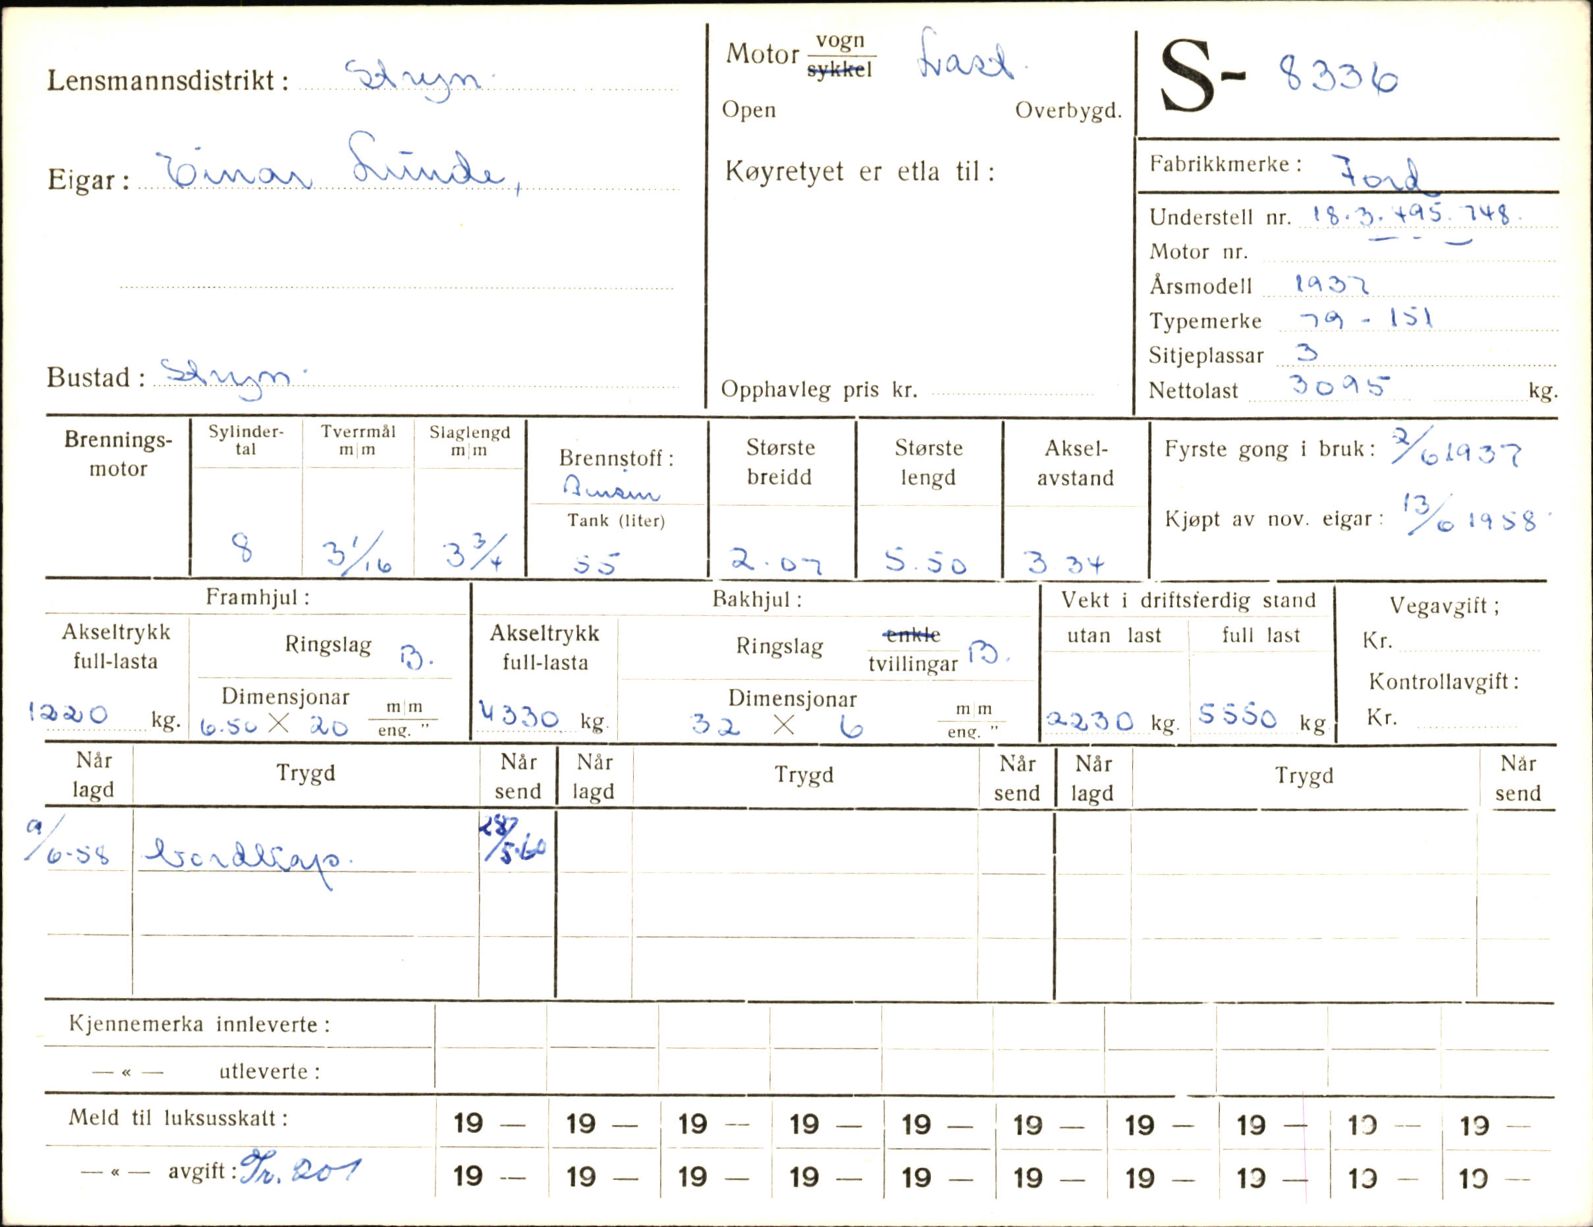 Lensmannsdistrikt: Stryn.
Eigar: Einar Lunde,
Bustad: Stryn.
Motor vogn
sykkel Last.
Open Overbygd.
Køyretyet er etla til:
Opphavleg pris kr.
S- 8336
Fabrikkmerke: Ford
Understell nr. 18.3.495.748.
Motor nr. — " —
Årsmodell 1937
Typemerke 79 - 151
Sitjeplassar 3
Nettolast 3095 kg.
Brennings-
motor
Sylinder-
tal
8
Tverrmål
m|m
3 1/16
Slaglengd
m|m
3 3/4
Brennstoff:
Bensin
Tank (liter)
55
Største
breidd
2.07
Største
lengd
5.50
Aksel-
avstand
3 34
Fyrste gong i bruk: 2/6 1937
Kjøpt av nov. eigar: 13/6 1958
Framhjul:
Akseltrykk
full-lasta
1220 kg.
Ringslag B.
Dimensjonar m|m
6.50 X 20 eng. "
Bakhjul:
Akseltrykk
full-lasta
4330 kg.
Ringslag enkle
tvillingar B.
Dimensjonar m|m
32 X 6 eng. "
Vekt i driftsferdig stand
utan last full last
2230 kg. 5550 kg
Vegavgift;
Kr.
Kontrollavgift:
Kr.
Når
lagd Trygd Når
send Når
lagd Trygd Når
send Når
lagd Trygd Når
send
9/6-58 Nordkap. 28/5.60
Kjennemerka innleverte:
— « — utleverte:
Meld til luksusskatt: 19 — 19 — 19 — 19 — 19 — 19 — 19 — 19 — 19 — 19 —
— « — avgift: Tr. 201 19 — 19 — 19 — 19 — 19 — 19 — 19 — 19 — 19 — 19 —